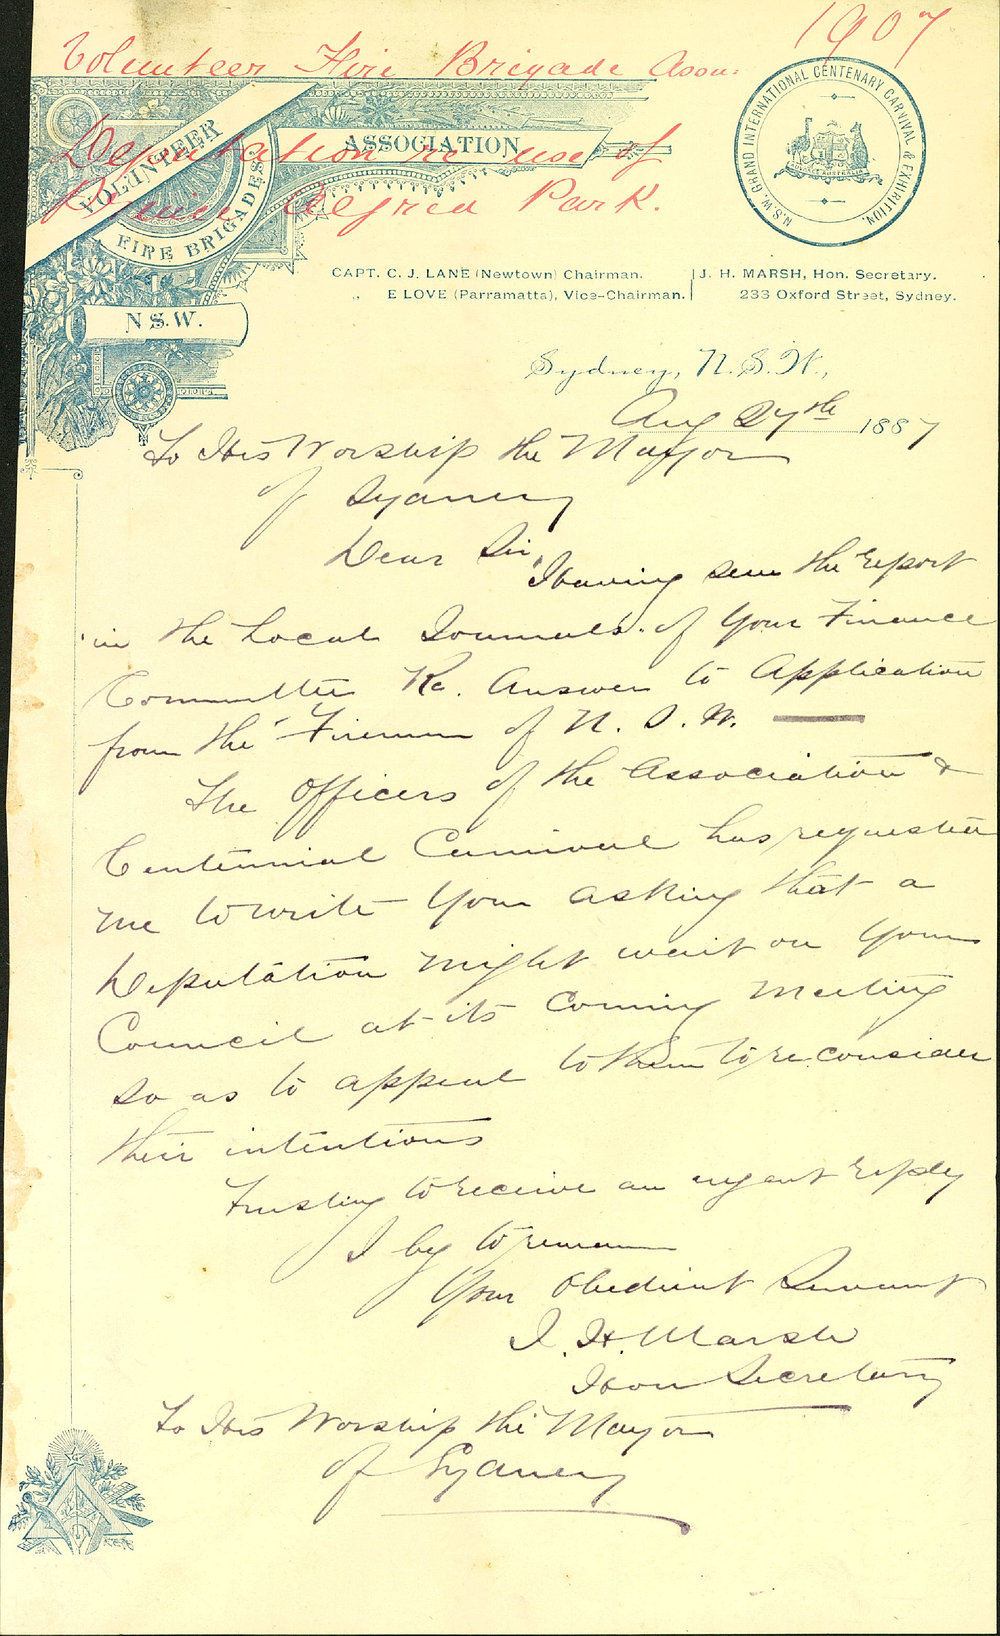 1907
Volunteer Fire Brigade Assn:
Deputation re use of
Prince Alfred Park.
VOLUNTEER
FIRE BRIGADES
ASSOCIATION
N.S.W.
N.S.W. GRAND INTERNATIONAL CENTENARY CARNIVAL & EXHIBITION.
ADVANCE AUSTRALIA
CAPT. C. J. LANE (Newtown) Chairman.
„ E LOVE (Parramatta), Vice-Chairman.
J. H. MARSH, Hon. Secretary.
233 Oxford Street, Sydney.
Sydney, N.S.W.,
Aug 27th 1887
To His Worship the Mayor
of Sydney
Dear Sir,
Having seen the report
in the Local Journals of Your Finance
Committee Re. Answer to Application
from the Firemen of N. S. W. —
The Officers of the Association &
Centennial Carnival has requested
me to write Your asking that a
Deputation might wait on Your
Council at its Coming Meeting
so as to appeal to them to re.consider
their intentions
Trusting to receive an urgent reply
I beg to remain
Your Obedient Servant
J. H. Marsh
Hon Secretary
To His Worship the Mayor
of Sydney